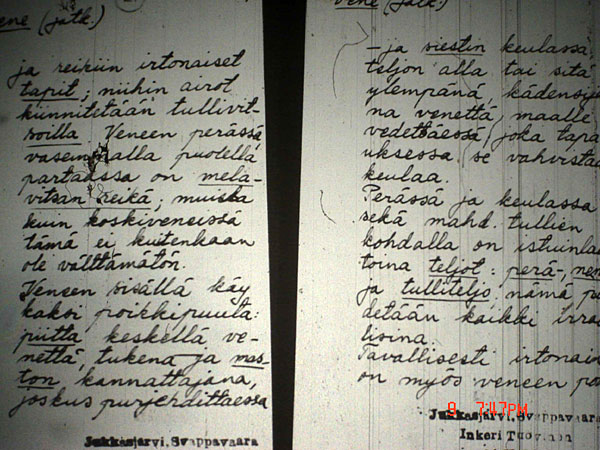 vene (jatk.)
ja reikiin irtonaiset
tapit; niihin airot
kiinnitetään tullivit-
soilla. Veneen perässä,
vasemmalla puolella
partaassa on mela-
vitsan reikä; muissa
kuin koskiveneissä
tämä ei kuitenkaan
ole välttämätön.
Veneen sisällä käy
kaksi poikkipuuta:
piitta keskellä ve-
nettä, tukena ja mas-
ton kannattajana,
joskus purjehdittaessa
Jukkasjärvi, Svappavaara
vene (jatk.)
- ja viestin keulassa,
teljon alla tai sitä
ylempänä kädensij
na venettä maalle
vedettäessä, joka tapa
uksessa se vahvistaa
keulaa.
Perässä ja keulassa
sekä mahd. tullien
kohdalla on istuinlau
toina teljot: perä-,
ja tulliteljo, nämä
detään kaikki irra
lisina.
Tavallisesti irtonain
on myös veneen po
Jukkasjärvi, Svappavaara
Inkeri
9 7:47PM